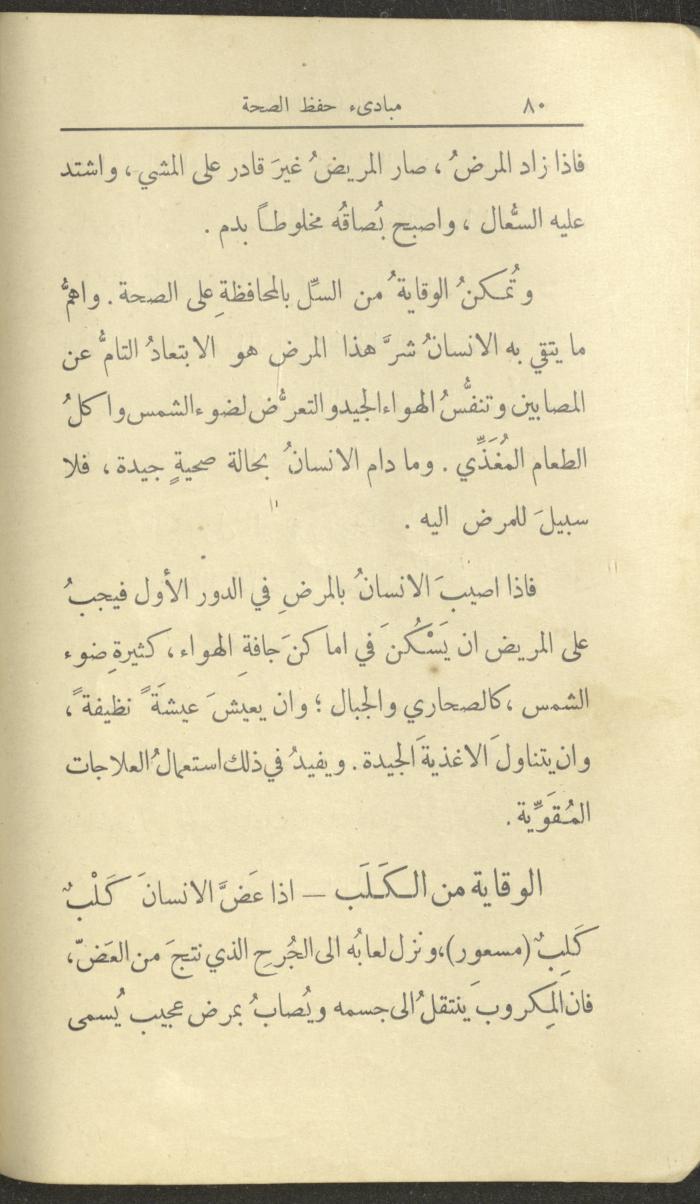 ٨٠ مبادىء حفظ الصحة
فاذا زاد المرضُ ، صار المريضُ غيرَ قادر على المشي ، واشتد
عليه السُّعال ، واصبح بُصاقُه مخلوطـاً بدم .
وتُمكنُ الوقايةُ من السِّل بالمحافظةِ على الصحة . واهمُّ
ما يتقي به الانسانُ شرَّ هذا المرض هو الابتعادُ التامُّ عن
المصابين وتنفُّسُ الهواء الجيد والتعرُّض لضوء الشمس واكلُ
الطعام المُغَذِّي . وما دام الانسانُ بحالة صحيةٍ جيدة ، فلا
سبيلَ للمرض اليه .
فاذا اصيبَ الانسانُ بالمرضِ في الدور الأول فيجبُ
على المريض ان يَسْكُنَ في اماكنَ جافةِ الهواء ، كثيرةِ ضوء
الشمس ، كالصحاري والجبال ؛ وان يعيشَ عيشَةً نظيفةً ،
وان يتناولَ الاغذيةَ الجيدة . ويفيدُ في ذلك استعمالُ العلاجات
المُقَوِّية .
الوقاية من الـكَـلَب — اذا عَضَّ الانسانَ كَلْبٌ
كَلِبٌ (مسعور) ، ونزل لعابُه الى الجُرحِ الذي نتجَ من العَضّ ،
فان المِكروبَ ينتقلُ الى جسمه ويُصابُ بمرض عجيب يُسمى